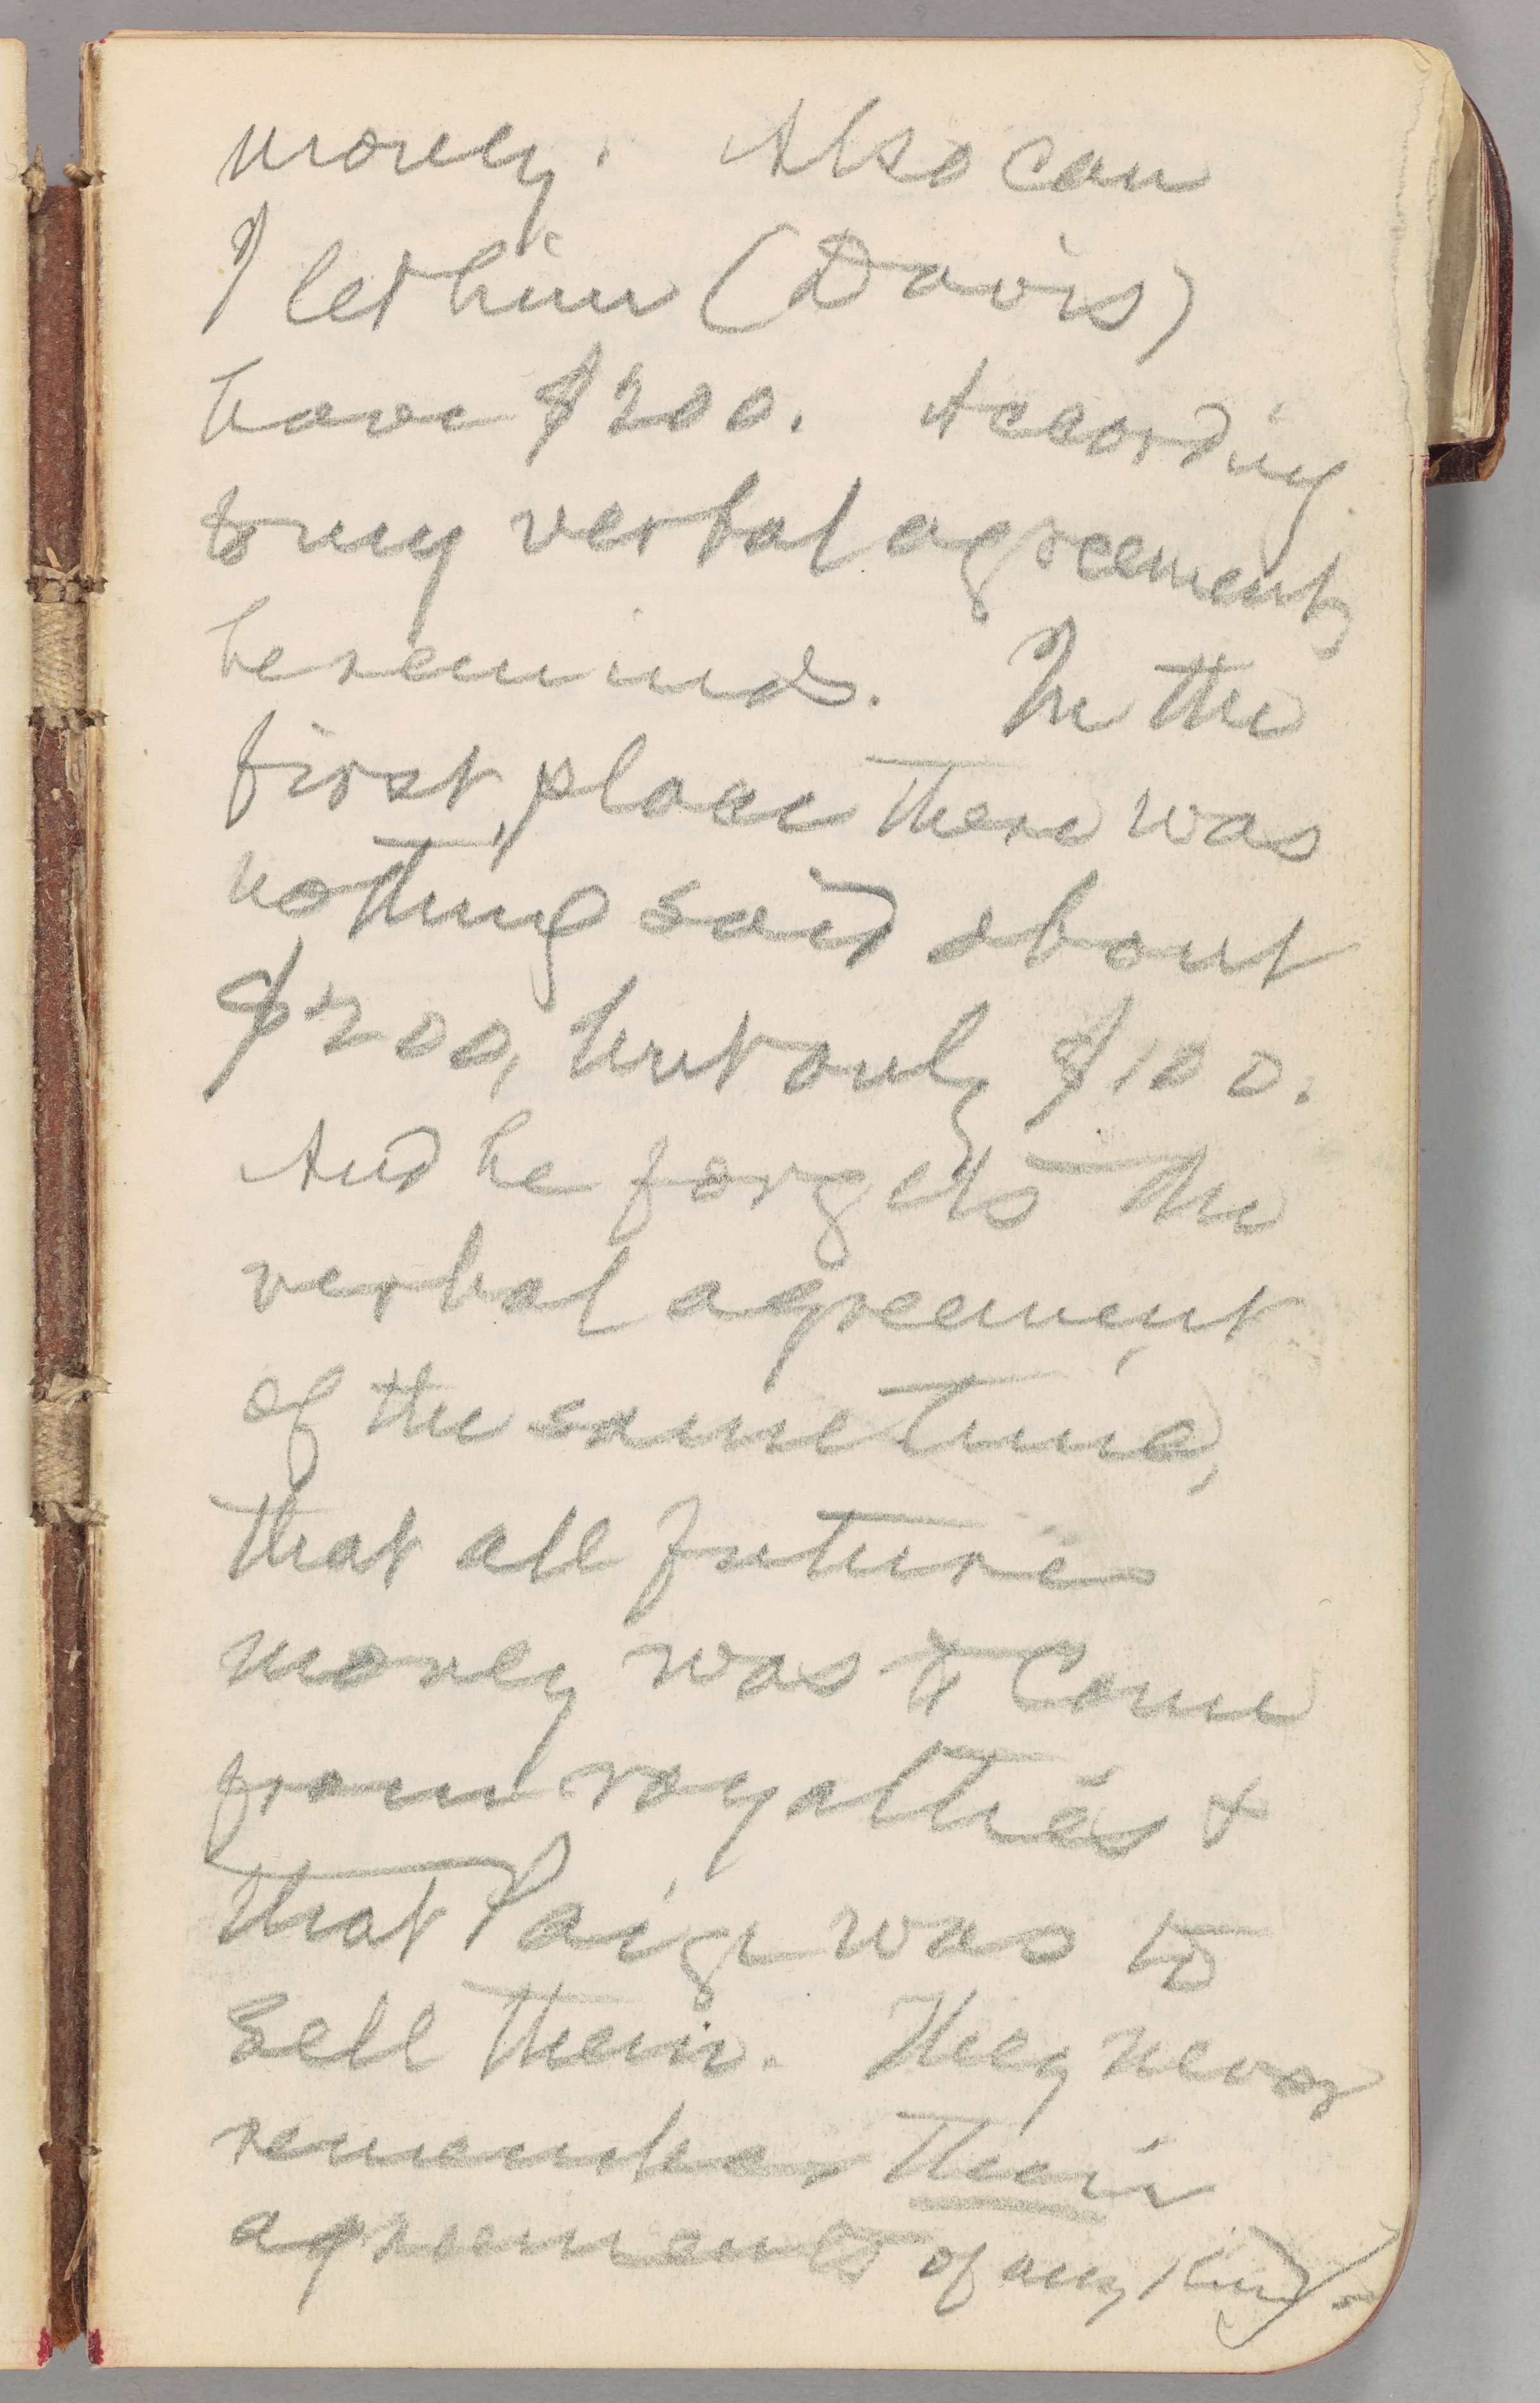 money. Also can
I let him (Davis)
have $200. According
to my verbal agreement,
he reminds. In the
first place there was
nothing said about
$200, but only $100.
And he forgets the
verbal agreement
of the same time,
that all future
money was to come
from royalties &
that Paige was to
sell them. They never
remember their
agreements of any kind.